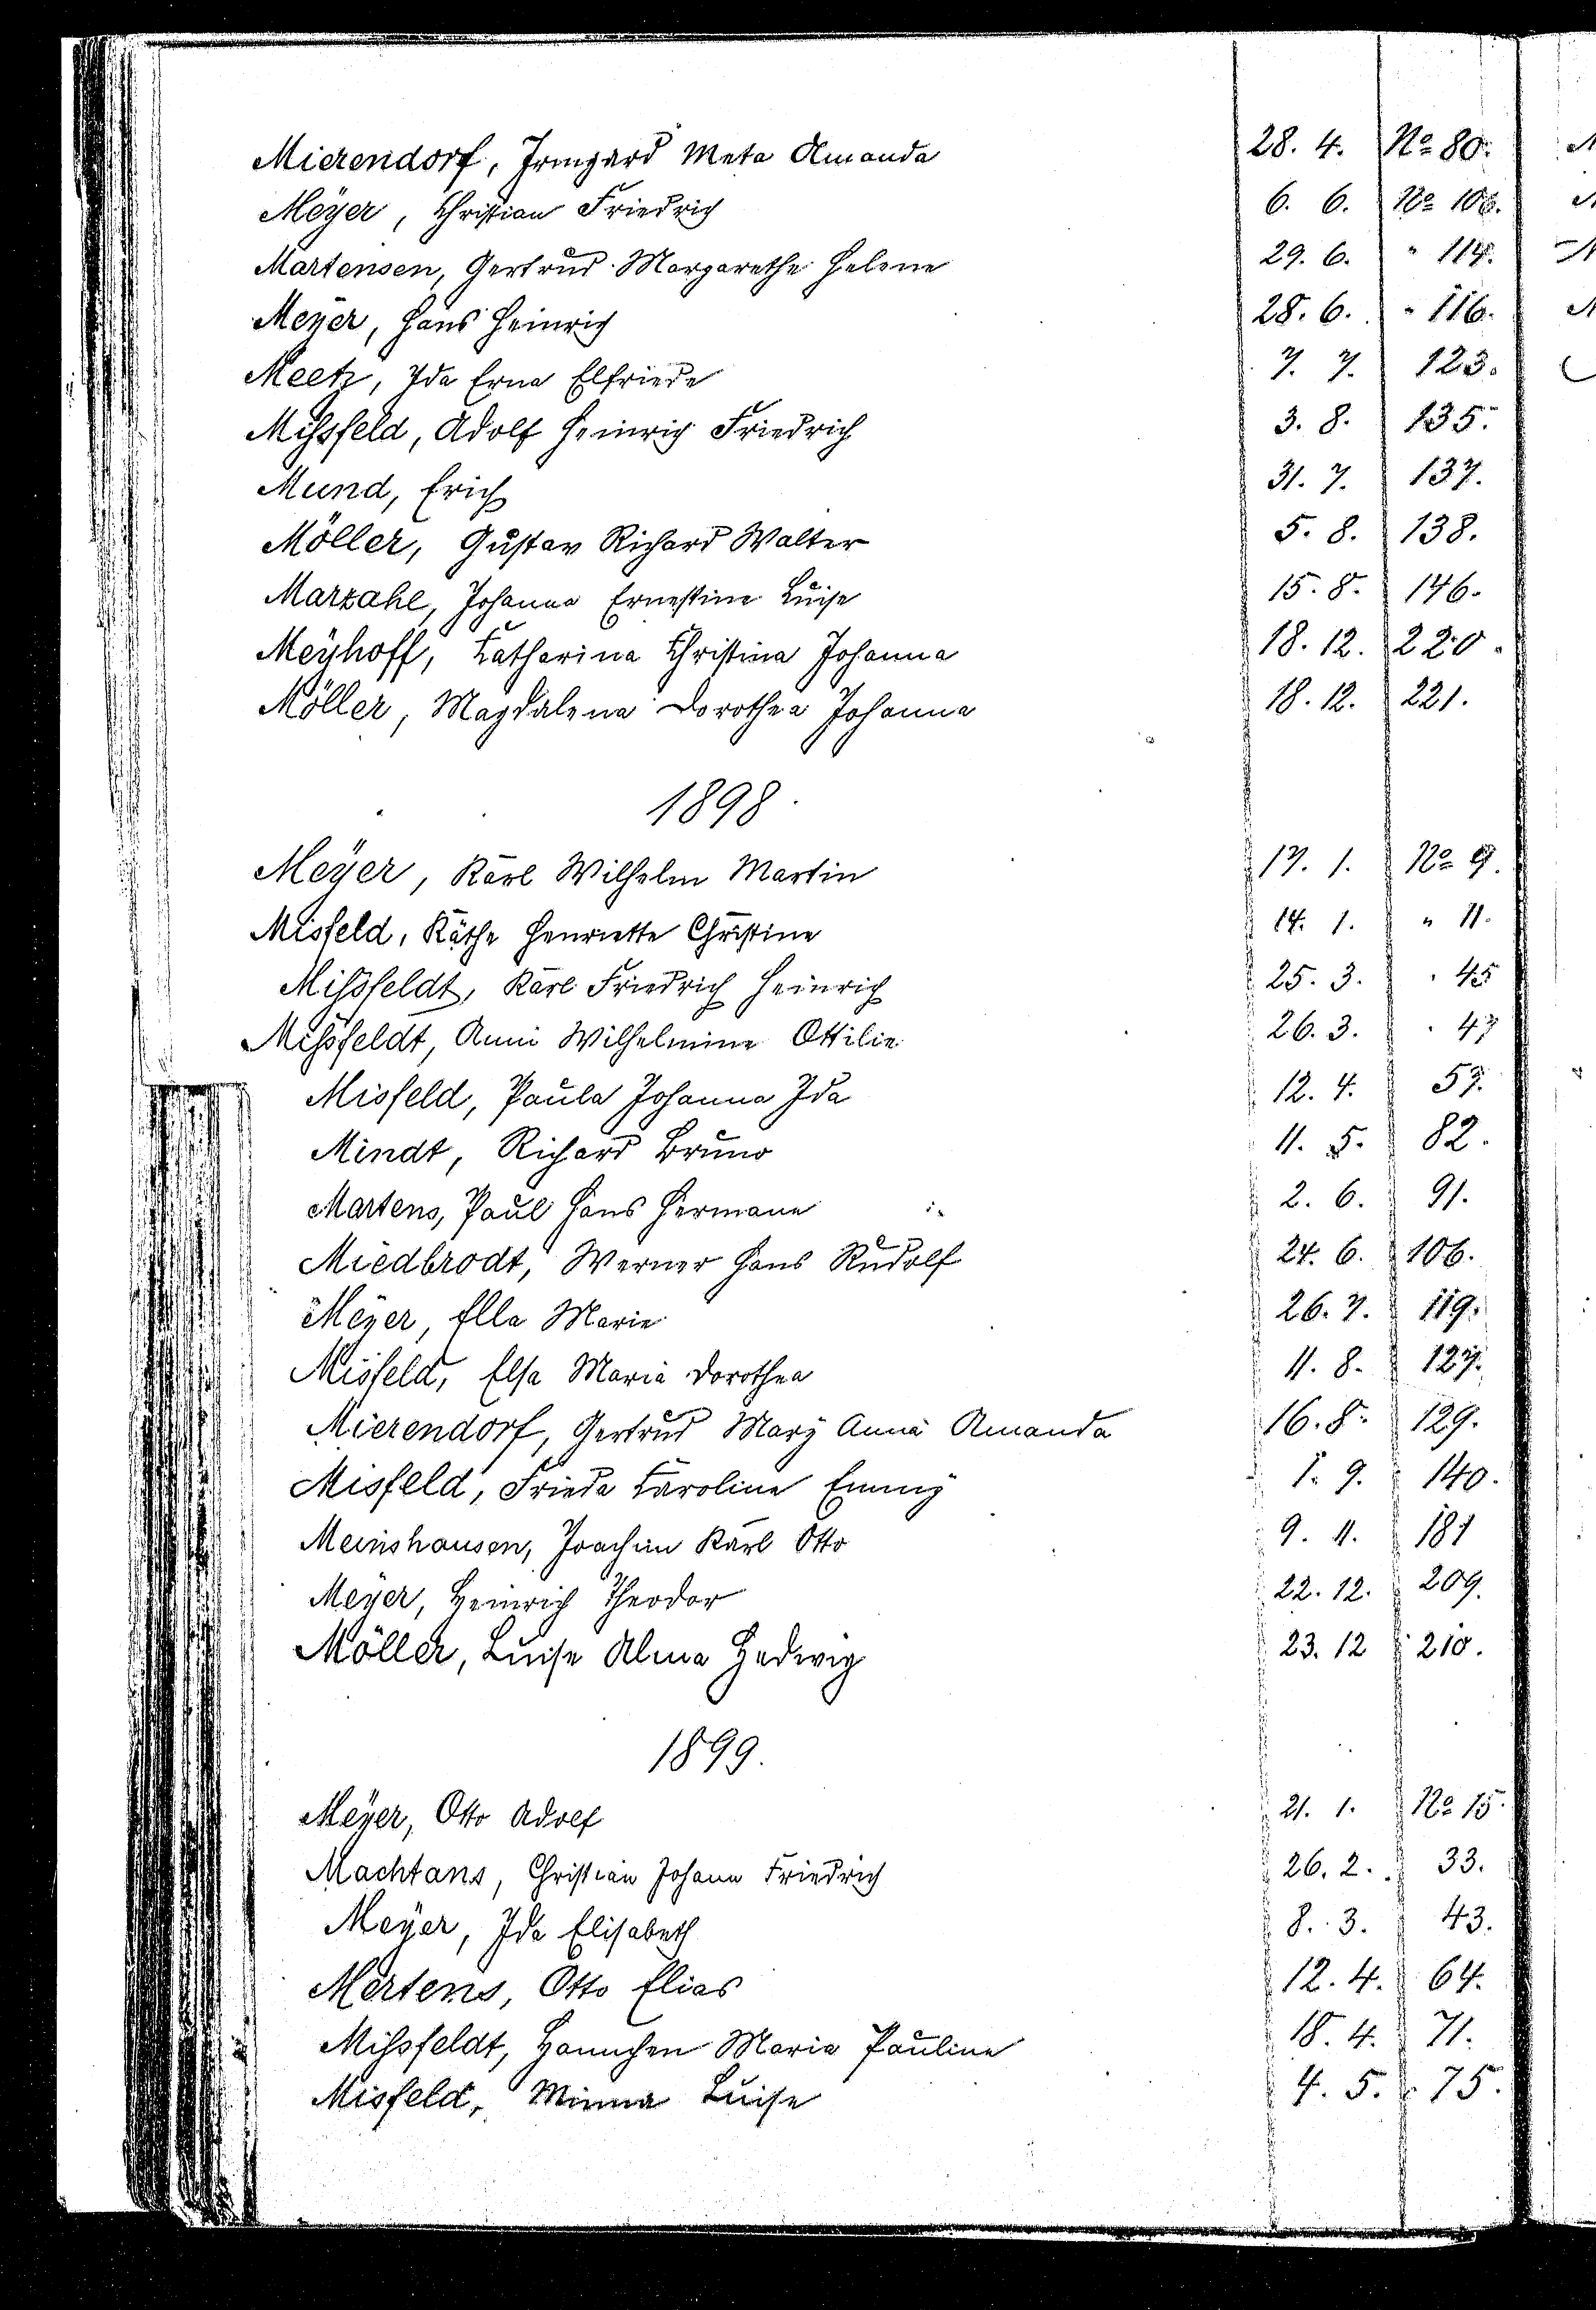 Mierendorf, Irmgard Meta Amanda 28. 4. No 80.
Meÿer, Christian Friedrich 6. 6. No 106.
Martensen, Gertrud Margarethe Helene 29. 6. " 114.
Meÿer, Hans Heinrich 28. 6. " 116.
Meetz, Ida Erna Elfriede 7. 7. 123.
Missfeld, Adolf Heinrich Friedrich 3. 8. 135.
Mund, Erich 31. 7. 137.
Möller, Gustav Richard Walter 5. 8. 138.
Marzahl, Johanna Ernestine Luise 15. 8. 146.
Meÿhoff, Katharina Christina Johanna 18. 12. 220.
Möller, Magdalena Dorothea Johanna 18. 12. 221.
1898.
Meÿer, Karl Wilhelm Martin 17. 1. No 9.
Misfeld, Käthe Henriette Christine 14. 1. " 11.
Missfeldt, Karl Friedrich Heinrich 25. 3. " 45
Missfeldt, Anni Wilhelmine Ottilie 26. 3. " 47
Misfeld, Paula Johanna Ida 12. 4. 57.
Mindt, Richard Bruno 11. 5. 82.
Martens, Paul Hans Hermann 2. 6. 91.
Miedbrodt, Werner Hans Rudolf 24. 6. 106.
Meÿer, Ella Marie 26. 7. 119.
Misfeld, Elsa Maria Dorothea 11. 8. 127.
Mierendorf, Gertrud Marÿ Anna Amanda 16. 8. 129.
Misfeld, Frieda Karoline Emmÿ 1. 9. 140.
Meinshausen, Joachim Karl Otto 9. 11. 181
Meyer, Heinrich Theodor 22. 12. 209.
Möller, Luise Alma Hedwig 23. 12 210.
1899.
Meÿer, Otto Adolf 21. 1. No 15.
Machtans, Christian Johann Friedrich 26. 2. 33.
Meÿer, Ida Elisabeth 8. 3. 43.
Mertens, Otto Elias 12. 4. 64.
Missfeldt, Hannchen Maria Pauline 18. 4. 71.
Misfeld, Minna Luise 4. 5. 75.